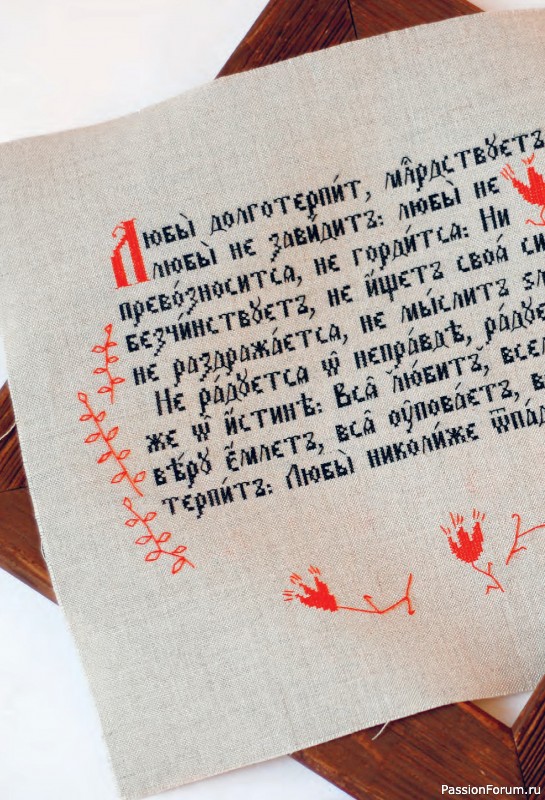 Любы̀ долготерпи́т, мл҃рдствꙋетъ
любы̀ не зави́дитъ: любы̀ не
превозно́сится, не горди́тсѧ: Ни
безчи́нствꙋетъ, не и҆́щетъ своѧ́ си
не раздража́етсѧ, не мы́слитъ ѕл
Не ра́дꙋетсѧ ѡ҆ непра́вдѣ, ра́дꙋе
же ѡ҆ и҆́стинѣ: Всѧ̑ лю́битъ, все
вѣ́рꙋ є҆́млетъ, всѧ̑ ᲂу҆пова́етъ, в
терпи́тъ: Любы̀ николи́же ѿпад
PassionForum.ru